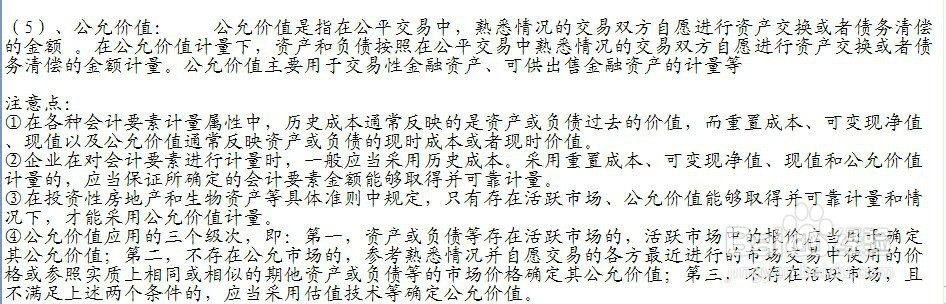 （5）、公允价值： 公允价值是指在公平交易中，熟悉情况的交易双方自愿进行资产交换或者债务清偿
的金额 。在公允价值计量下，资产和负债按照在公平交易中熟悉情况的交易双方自愿进行资产交换或者债
务清偿的金额计量。公允价值主要用于交易性金融资产、可供出售金融资产的计量等
注意点：
①在各种会计要素计量属性中，历史成本通常反映的是资产或负债过去的价值，而重置成本、可变现净值
、现值以及公允价值通常反映资产或负债的现时成本或者现时价值。
②企业在对会计要素进行计量时，一般应当采用历史成本。采用重置成本、可变现净值、现值和公允价值
计量的，应当保证所确定的会计要素金额能够取得并可靠计量。
③在投资性房地产和生物资产等具体准则中规定，只有存在活跃市场、公允价值能够取得并可靠计量和情
况下，才能采用公允价值计量。
④公允价值应用的三个级次，即：第一，资产或负债等存在活跃市场的，活跃市场中的报价应当用于确定
其公允价值；第二，不存在公允市场的，参考熟悉情况并自愿交易的各方最近进行的市场交易中使用的价
格或参照实质上相同或相似的期他资产或负债等的市场价格确定其公允价值；第三，不存在活跃市场，且
不满足上述两个条件的，应当采用估值技术等确定公允价值。